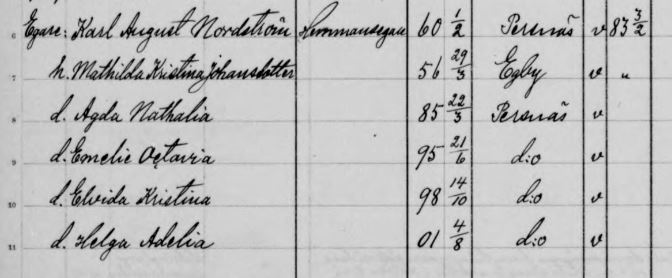 6 Egare: Karl August Nordström Hemmansegare 60 1/2 Persnäs v 83 3/2
7 h. Mathilda Kristina Johansdotter 56 29/3 Egby v "
8 d. Agda Nathalia 85 22/3 Persnäs v
9 d. Emelie Octavia 95 21/6 d:o v
10 d. Elvida Kristina 98 14/10 d:o v
11 d. Helga Adelia 01 4/8 d:o v